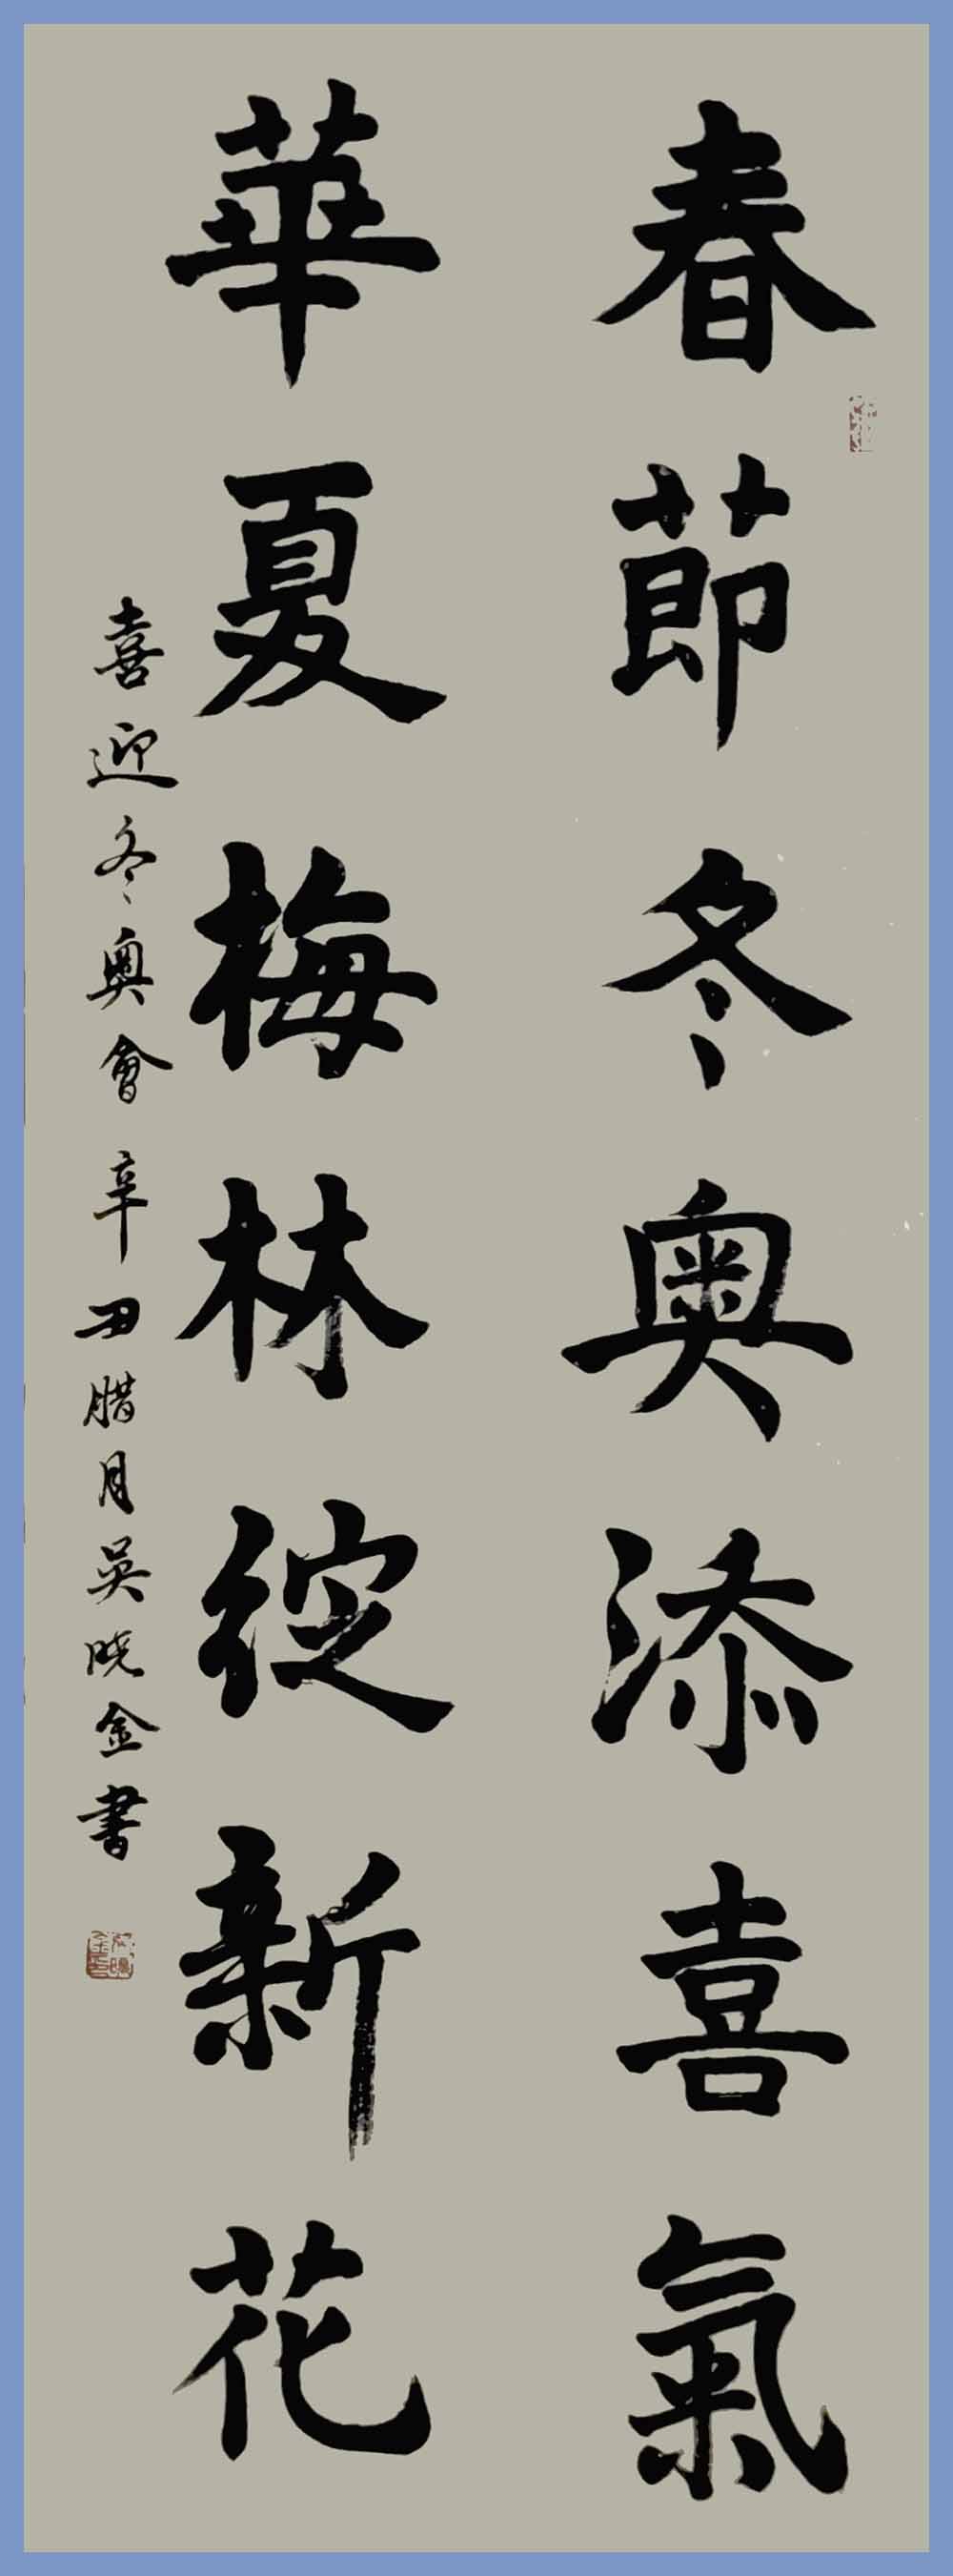 春節冬奥添喜氣
華夏梅林綻新花
喜迎冬奥會辛丑腊月吴晓金書